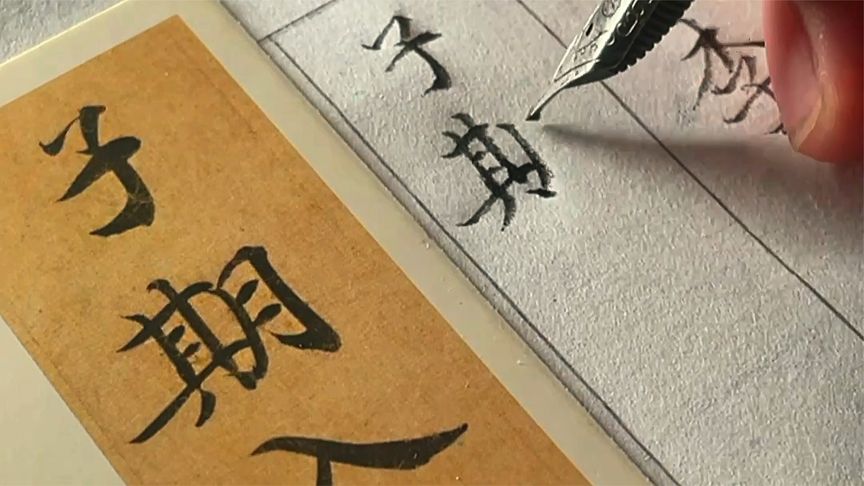 子期
子期